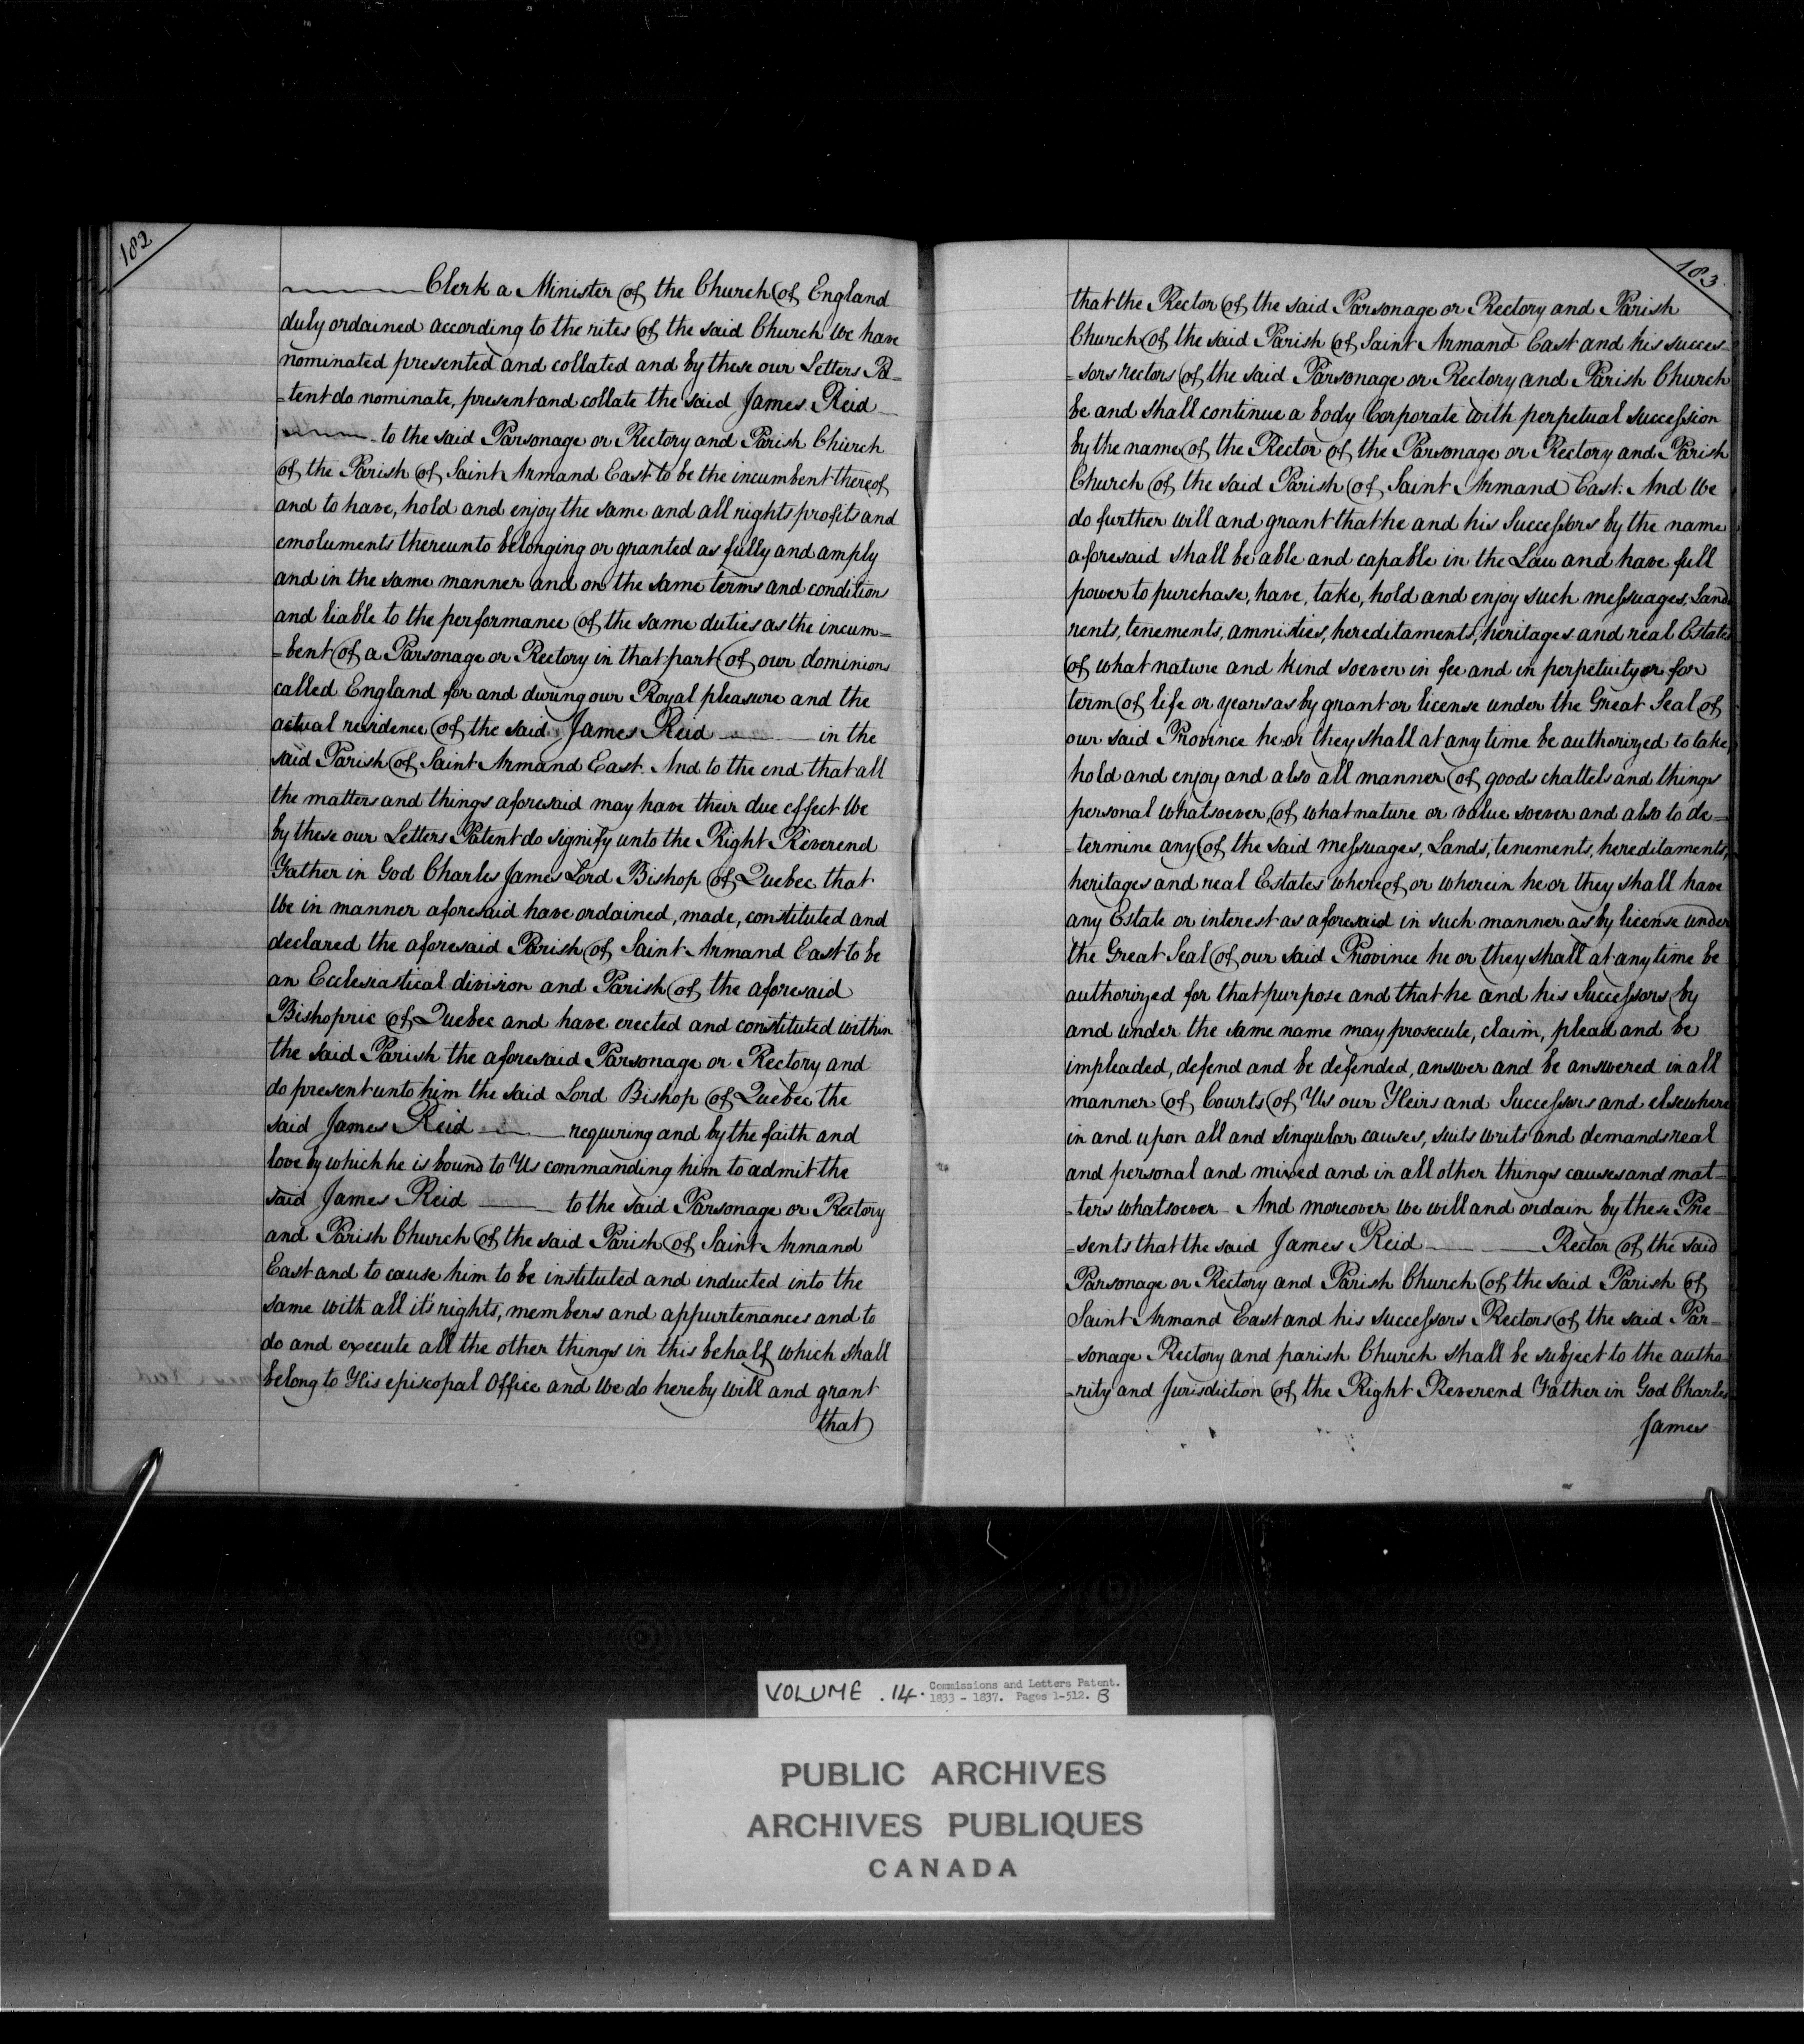 182
Clerk a Minister of the Church of England
duly ordained according to the rites of the said Church We have
nominated presented and collated and by these our Letters Pa=
=tent do nominate, present and collate the said James Reid
to the said Parsonage or Rectory and Parish Church
of the Parish of Saint Armand East to be the incumbent thereof
and to have, hold and enjoy the same and all rights profits and
emoluments thereunto belonging or granted as fully and amply
and in the same manner and on the same terms and conditions
and liable to the performance of the same duties as the incum=
=bent of a Parsonage or Rectory in that part of our dominions
called England for and during our Royal pleasure and the
actual residence of the said James Reid in the
said Parish of Saint Armand East. And to the end that all
the matters and things aforesaid may have their due effect We
by these our Letters Patent do signify unto the Right Reverend
Father in God Charles James Lord Bishop of Quebec that
We in manner aforesaid have ordained, made, constituted and
declared the aforesaid Parish of Saint Armand East to be
an Ecclesiastical division and Parish of the aforesaid
Bishopric of Quebec and have erected and constituted within
the said Parish the aforesaid Parsonage or Rectory and
do present unto him the said Lord Bishop of Quebec the
said James Reid requiring and by the faith and
love by which he is bound to Us commanding him to admit the
said James Reid to the said Parsonage or Rectory
and Parish Church of the said Parish of Saint Armand
East and to cause him to be instituted and inducted into the
same with all it's rights, members and appurtenances and to
do and execute all the other things in this behalf which shall
belong to His episcopal Office and We do hereby Will and grant
that
183
that the Rector of the said Parsonage or Rectory and Parish
Church of the said Parish of Saint Armand East and his succes=
=sors rectors of the said Parsonage or Rectory and Parish Church
be and shall continue a body Corporate with perpetual succession
by the name of the Rector of the Parsonage or Rectory and Parish
Church of the said Parish of Saint Armand East. And We
do further will and grant that he and his Successors by the name
aforesaid shall be able and capable in the Law and have full
power to purchase, have, take, hold and enjoy such messuages, Lands
rents, tenements, amnities, hereditaments, heritages and real Estates
of what nature and kind soever in fee and in perpetuity or for
term of life or years as by grant or license under the Great Seal of
our said Province he or they shall at any time be authorized to take,
hold and enjoy and also all manner of goods chattels and things
personal whatsoever, of what nature or value soever and also to de=
=termine any of the said messuages, Lands, tenements, hereditaments,
heritages and real Estates whereof or wherein he or they shall have
any Estate or interest as aforesaid in such manner as by license under
the Great Seal of our said Province he or they shall at any time be
authorized for that purpose and that he and his Successors by
and under the same name may prosecute, claim, plead and be
impleaded, defend and be defended, answer and be answered in all
manner of Courts of Us our Heirs and Successors and elsewhere
in and upon all and singular causes, suits writs and demands real
and personal and mixed and in all other things causes and mat=
=ters whatsoever - And moreover We will and ordain by these Pre=
=sents that the said James Reid Rector of the said
Parsonage or Rectory and Parish Church of the said Parish of
Saint Armand East and his successors Rectors of the said Par=
=sonage Rectory and parish Church shall be subject to the autho
=rity and Jurisdiction of the Right Reverend Father in God Charles
James
VOLUME .14. Commissions and Letters Patent.
1833 - 1837. Pages 1-512. B
PUBLIC ARCHIVES
ARCHIVES PUBLIQUES
CANADA